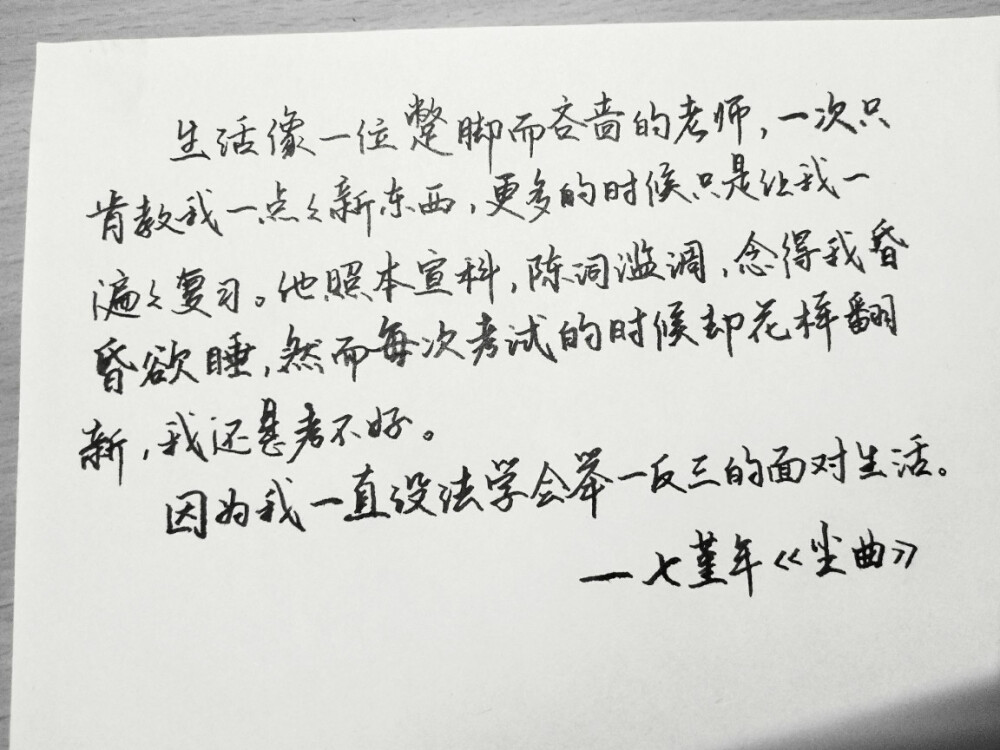 生活像一位蹩脚而吝啬的老师，一次只
肯教我一点々新东西，更多的时候只是让我一
遍々复习。他照本宣科，陈词滥调，念得我昏
昏欲睡，然而每次考试的时候却花样翻
新，我还总考不好。
因为我一直没法学会举一反三的面对生活。
—七堇年《尘曲》